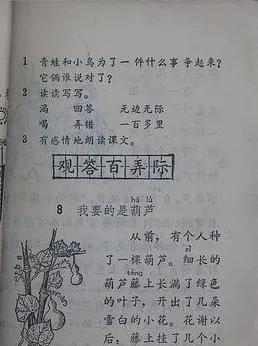 1 青蛙和小鸟为了一件什么事争起来?
它俩谁说对了?
2 读读写写。
渴 回答 无边无际
喝 弄错 一百多里
3 有感情地朗读课文。
观答百弄际
hú lú
8 我要的是葫芦
从前,有个人种
xì
了一棵葫芦。细长的
téng
葫芦藤上长满了绿色
的叶子,开出了几朵
雪白的小花。花谢以
后,藤上挂了几个小